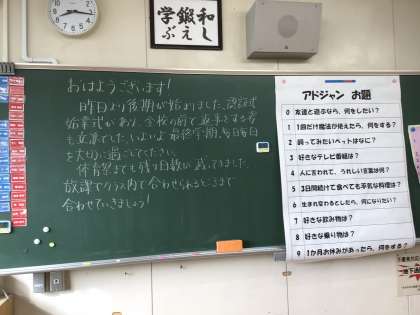 和 鍛 学
し え ぶ
おはようございます!
昨日より後期が始まりました。認証式
始業式があり、全校の前で返事をする姿
も立派でした。いよいよ最終学期。毎日毎日
を大切に過ごしてください。
体育祭までも残り日数が減ってきました。
放課でクラス内で合わせられるところまで
合わせていきましょう!
アドジャン お題
0 友達と遊ぶなら、何をしたい?
1 1回だけ魔法が使えたら、何をする?
2 飼ってみたいペットはなに?
3 好きなテレビ番組は?
4 人に言われて、うれしい言葉は何?
5 3日間続けて食べても平気な料理は?
6 生まれ変わるとしたら、何になりたい?
7 好きな飲み物は?
8 好きな乗り物は?
9 1か月お休みがあったら、何をする?